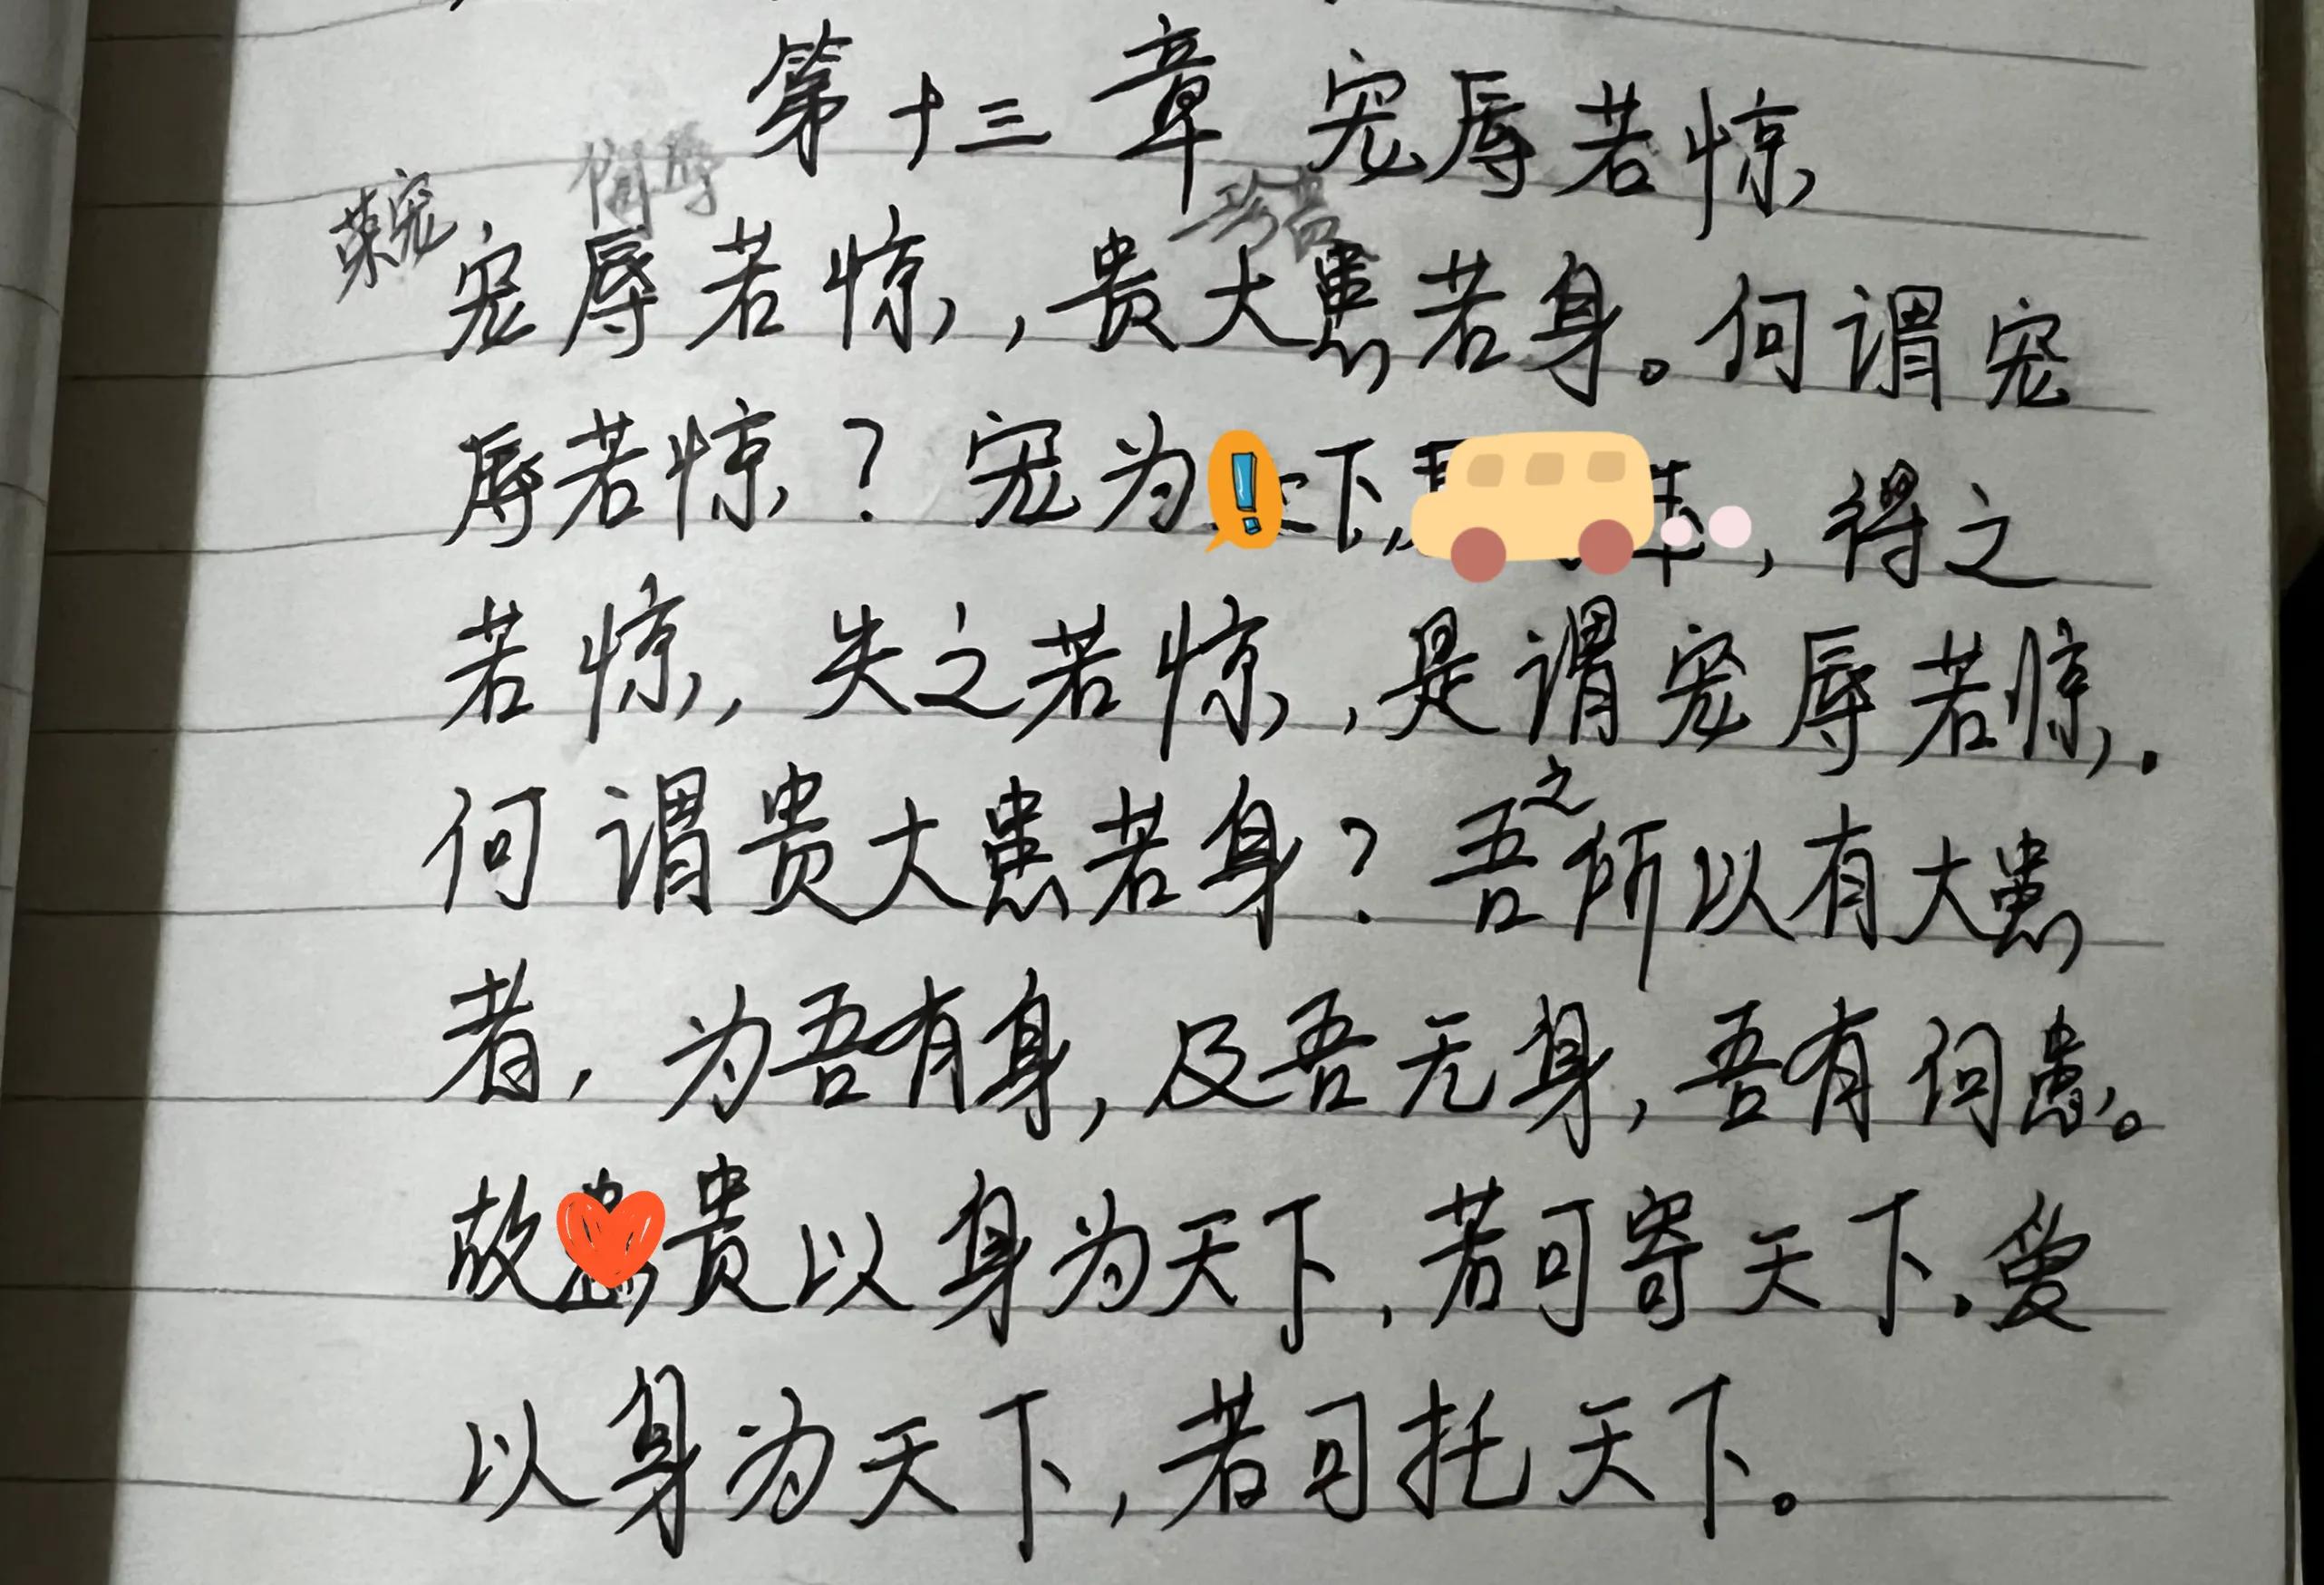 第十三章 宠辱若惊
荣宠 侮辱 珍贵
宠辱若惊,贵大患若身。何谓宠
辱若惊?宠为下,,得之
若惊,失之若惊,是谓宠辱若惊.
何谓贵大患若身?吾之所以有大患
者,为吾有身,及吾无身,吾有何患。
故贵以身为天下,若可寄天下.爱
以身为天下,若可托天下。